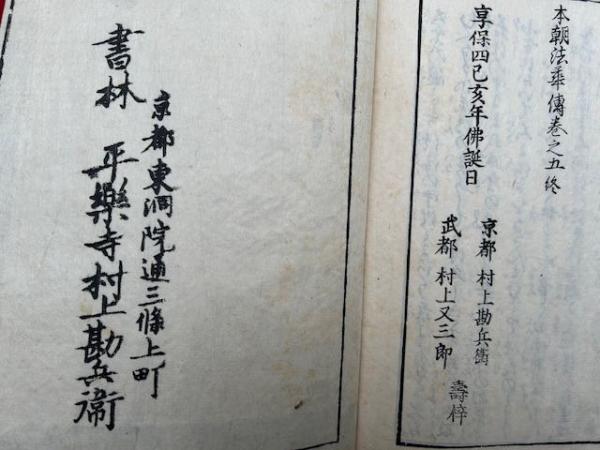 本朝法華傳巻之五終
享保四己亥年佛誕日
京都 村上勘兵衛
武都 村上又三郎
壽梓
京都東洞院通三條上町
書林 平樂寺村上勘兵衛